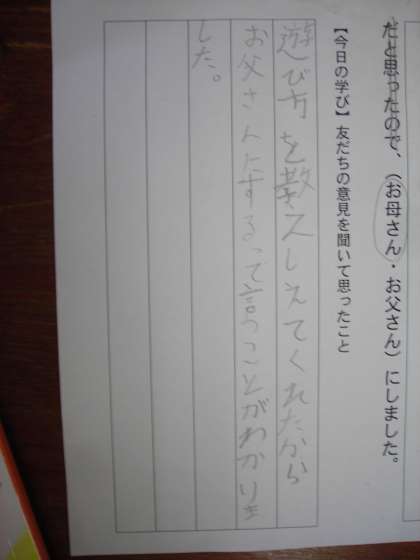 だと思ったので、（お母さん・お父さん）にしました。
【今日の学び】友だちの意見を聞いて思ったこと
遊び方を教しえてくれたから
お父さんにするって言うことがわかりま
した。